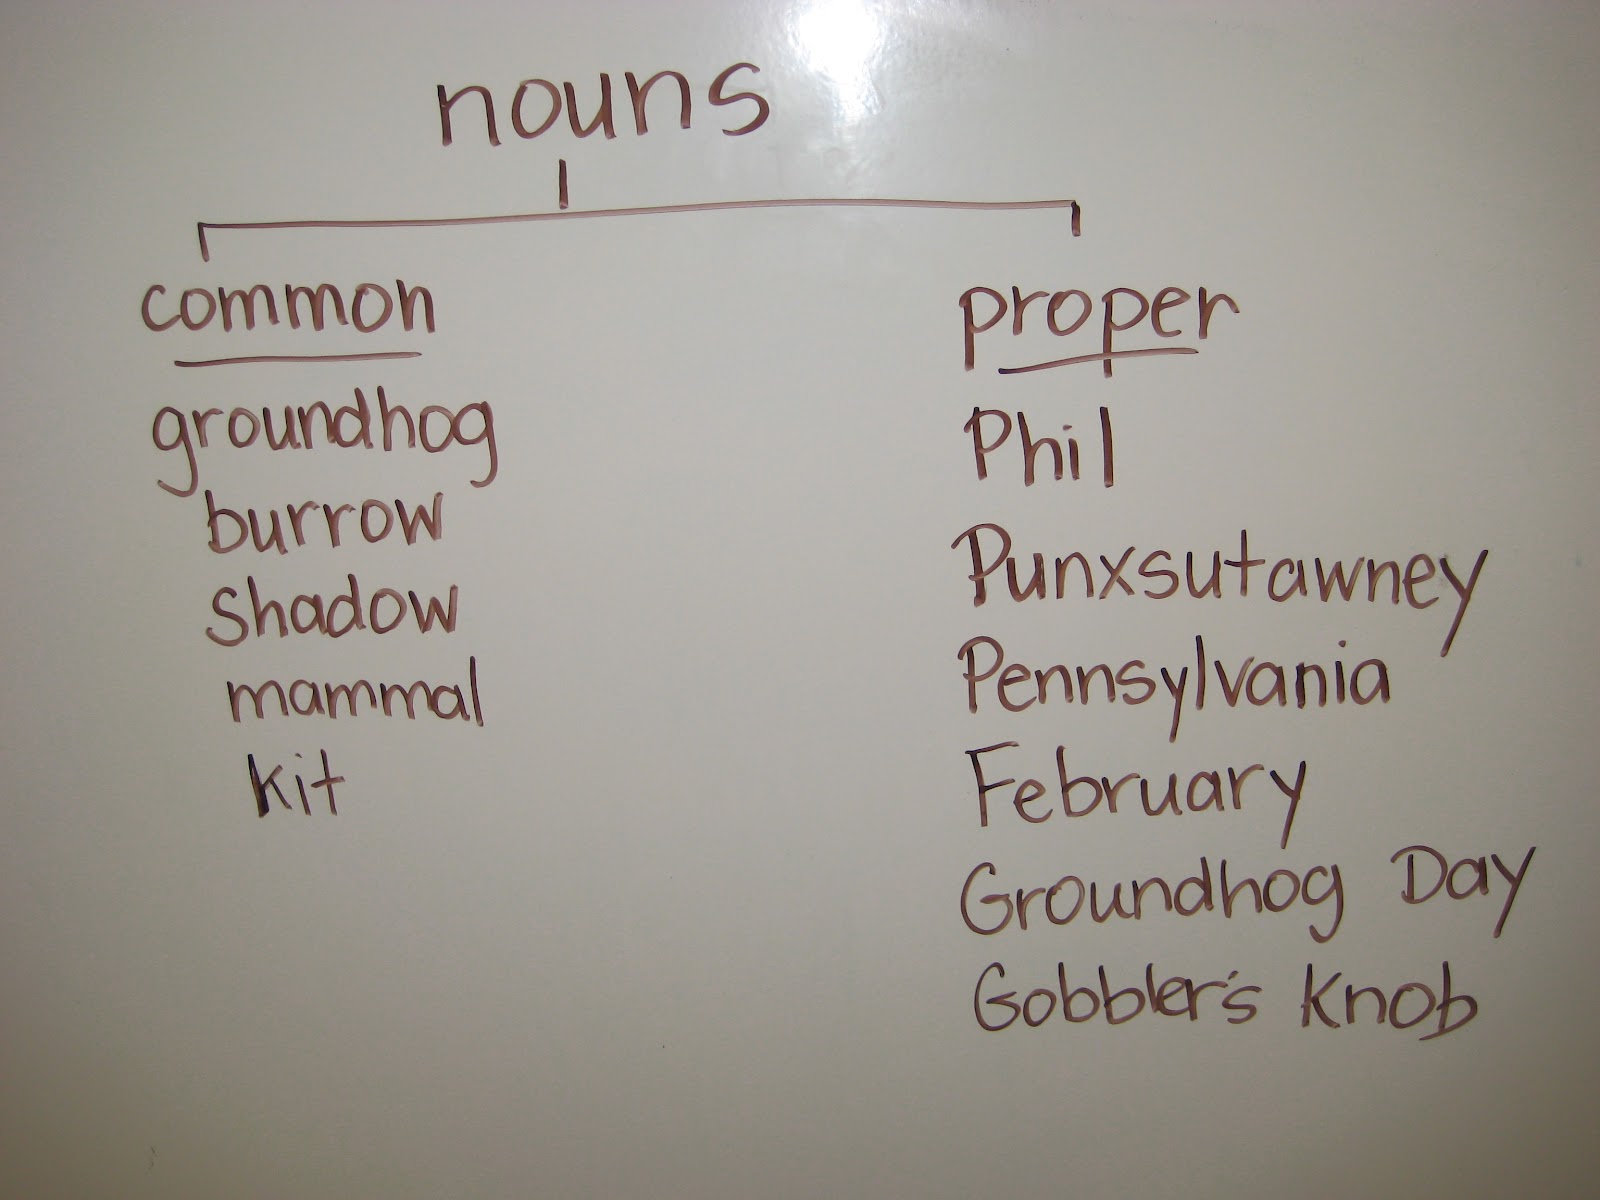 nouns
common
groundhog
burrow
shadow
mammal
kit
proper
Phil
Punxsutawney
Pennsylvania
February
Groundhog Day
Gobbler's Knob